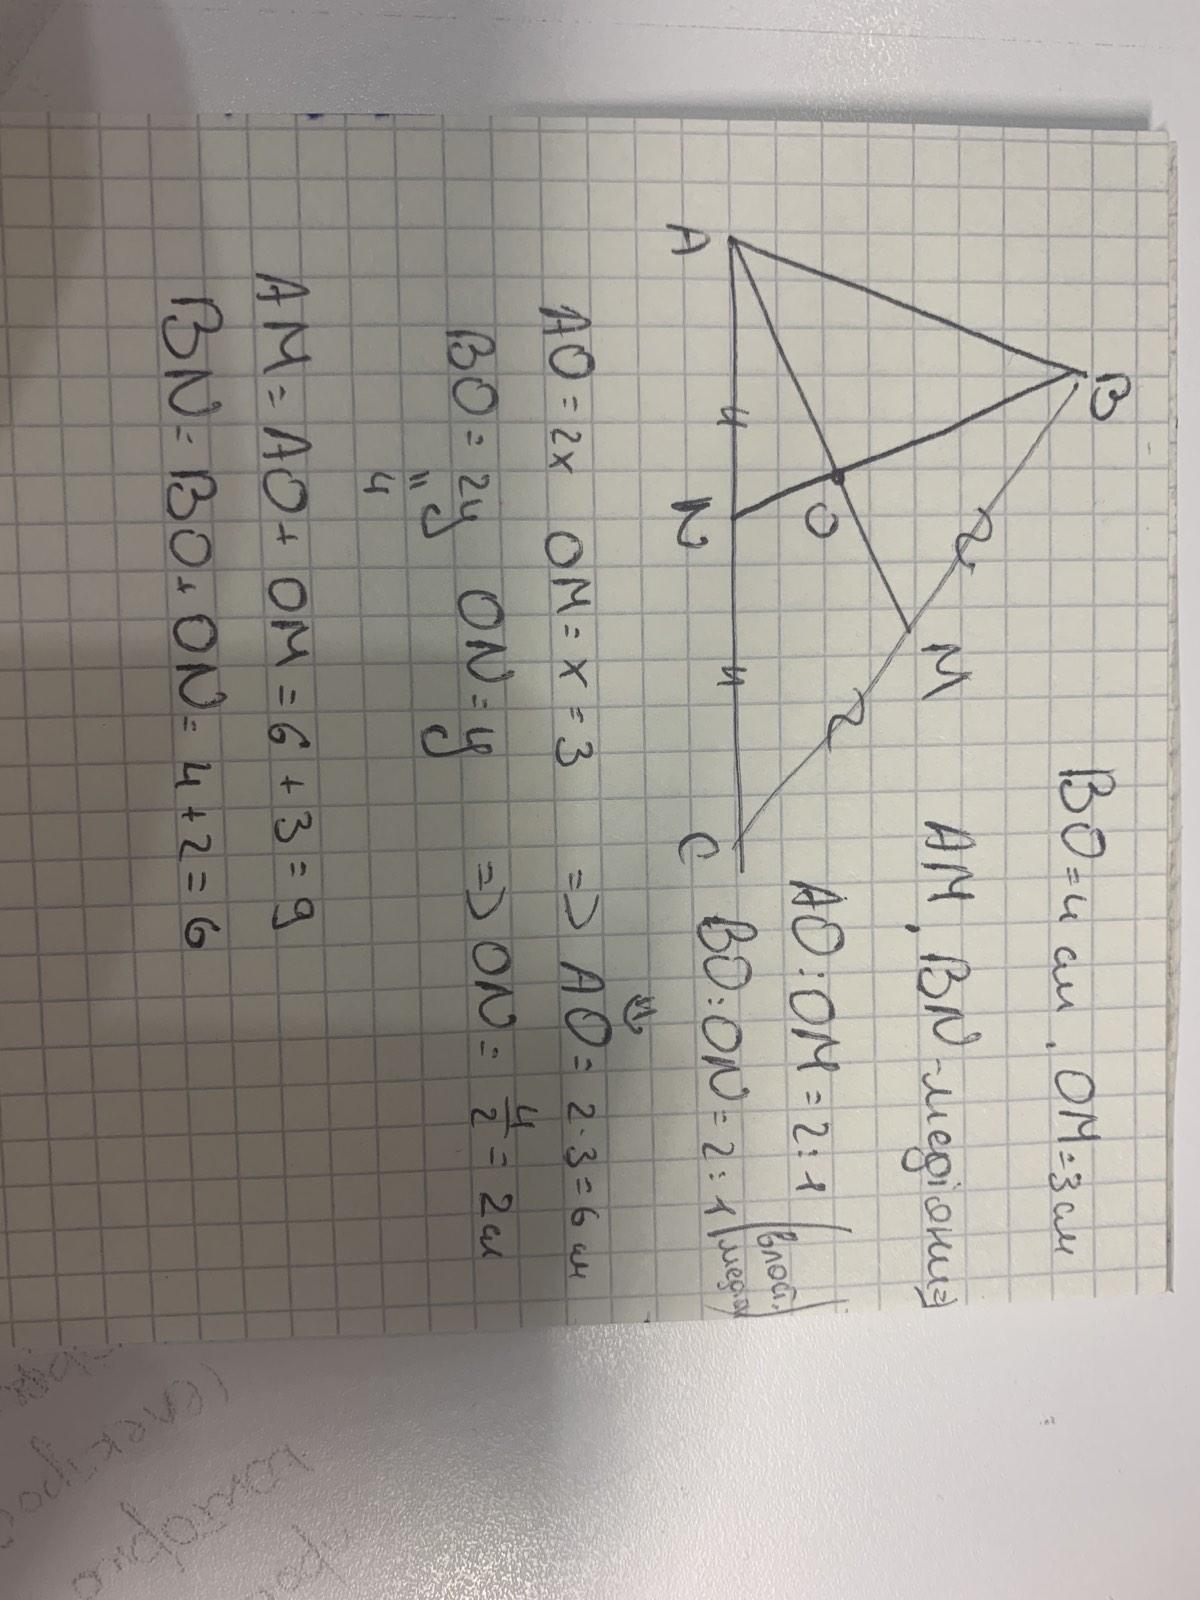 BO = 4 см, OM = 3 см
AM, BN - медіани =>
AO : OM = 2 : 1
BO : ON = 2 : 1
(влст.
медіан)
B
M
O
A
N
C
AO = 2x OM = x = 3 => AO = 2 · 3 = 6 см
BO = 2y ON = y => ON = 4/2 = 2 см
"
4
AM = AO + OM = 6 + 3 = 9
BN = BO + ON = 4 + 2 = 6